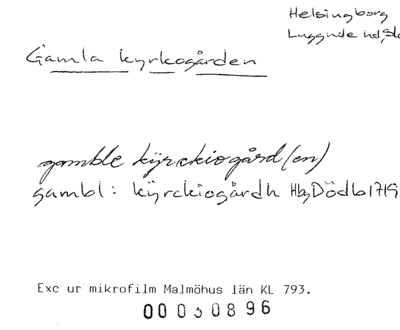 Helsingborg
Luggude hd, Sk
Gamla kyrkogården
gamble kÿrckiogård(en)
gambl: kÿrckiogårdh Hbg Dödb 1719
Exc ur mikrofilm Malmöhus län KL 793.
00030896